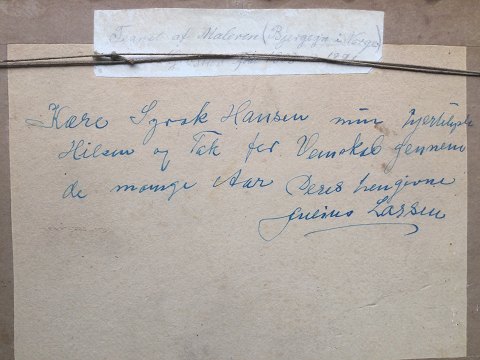 Tegnet af Maleren (Bjergegn i Norge)
Kære Syrak Hansen min hjerteligste
Hilsen og Tak for Venskab gennem
de mange Aar Deres hengivne
Julius Larsen